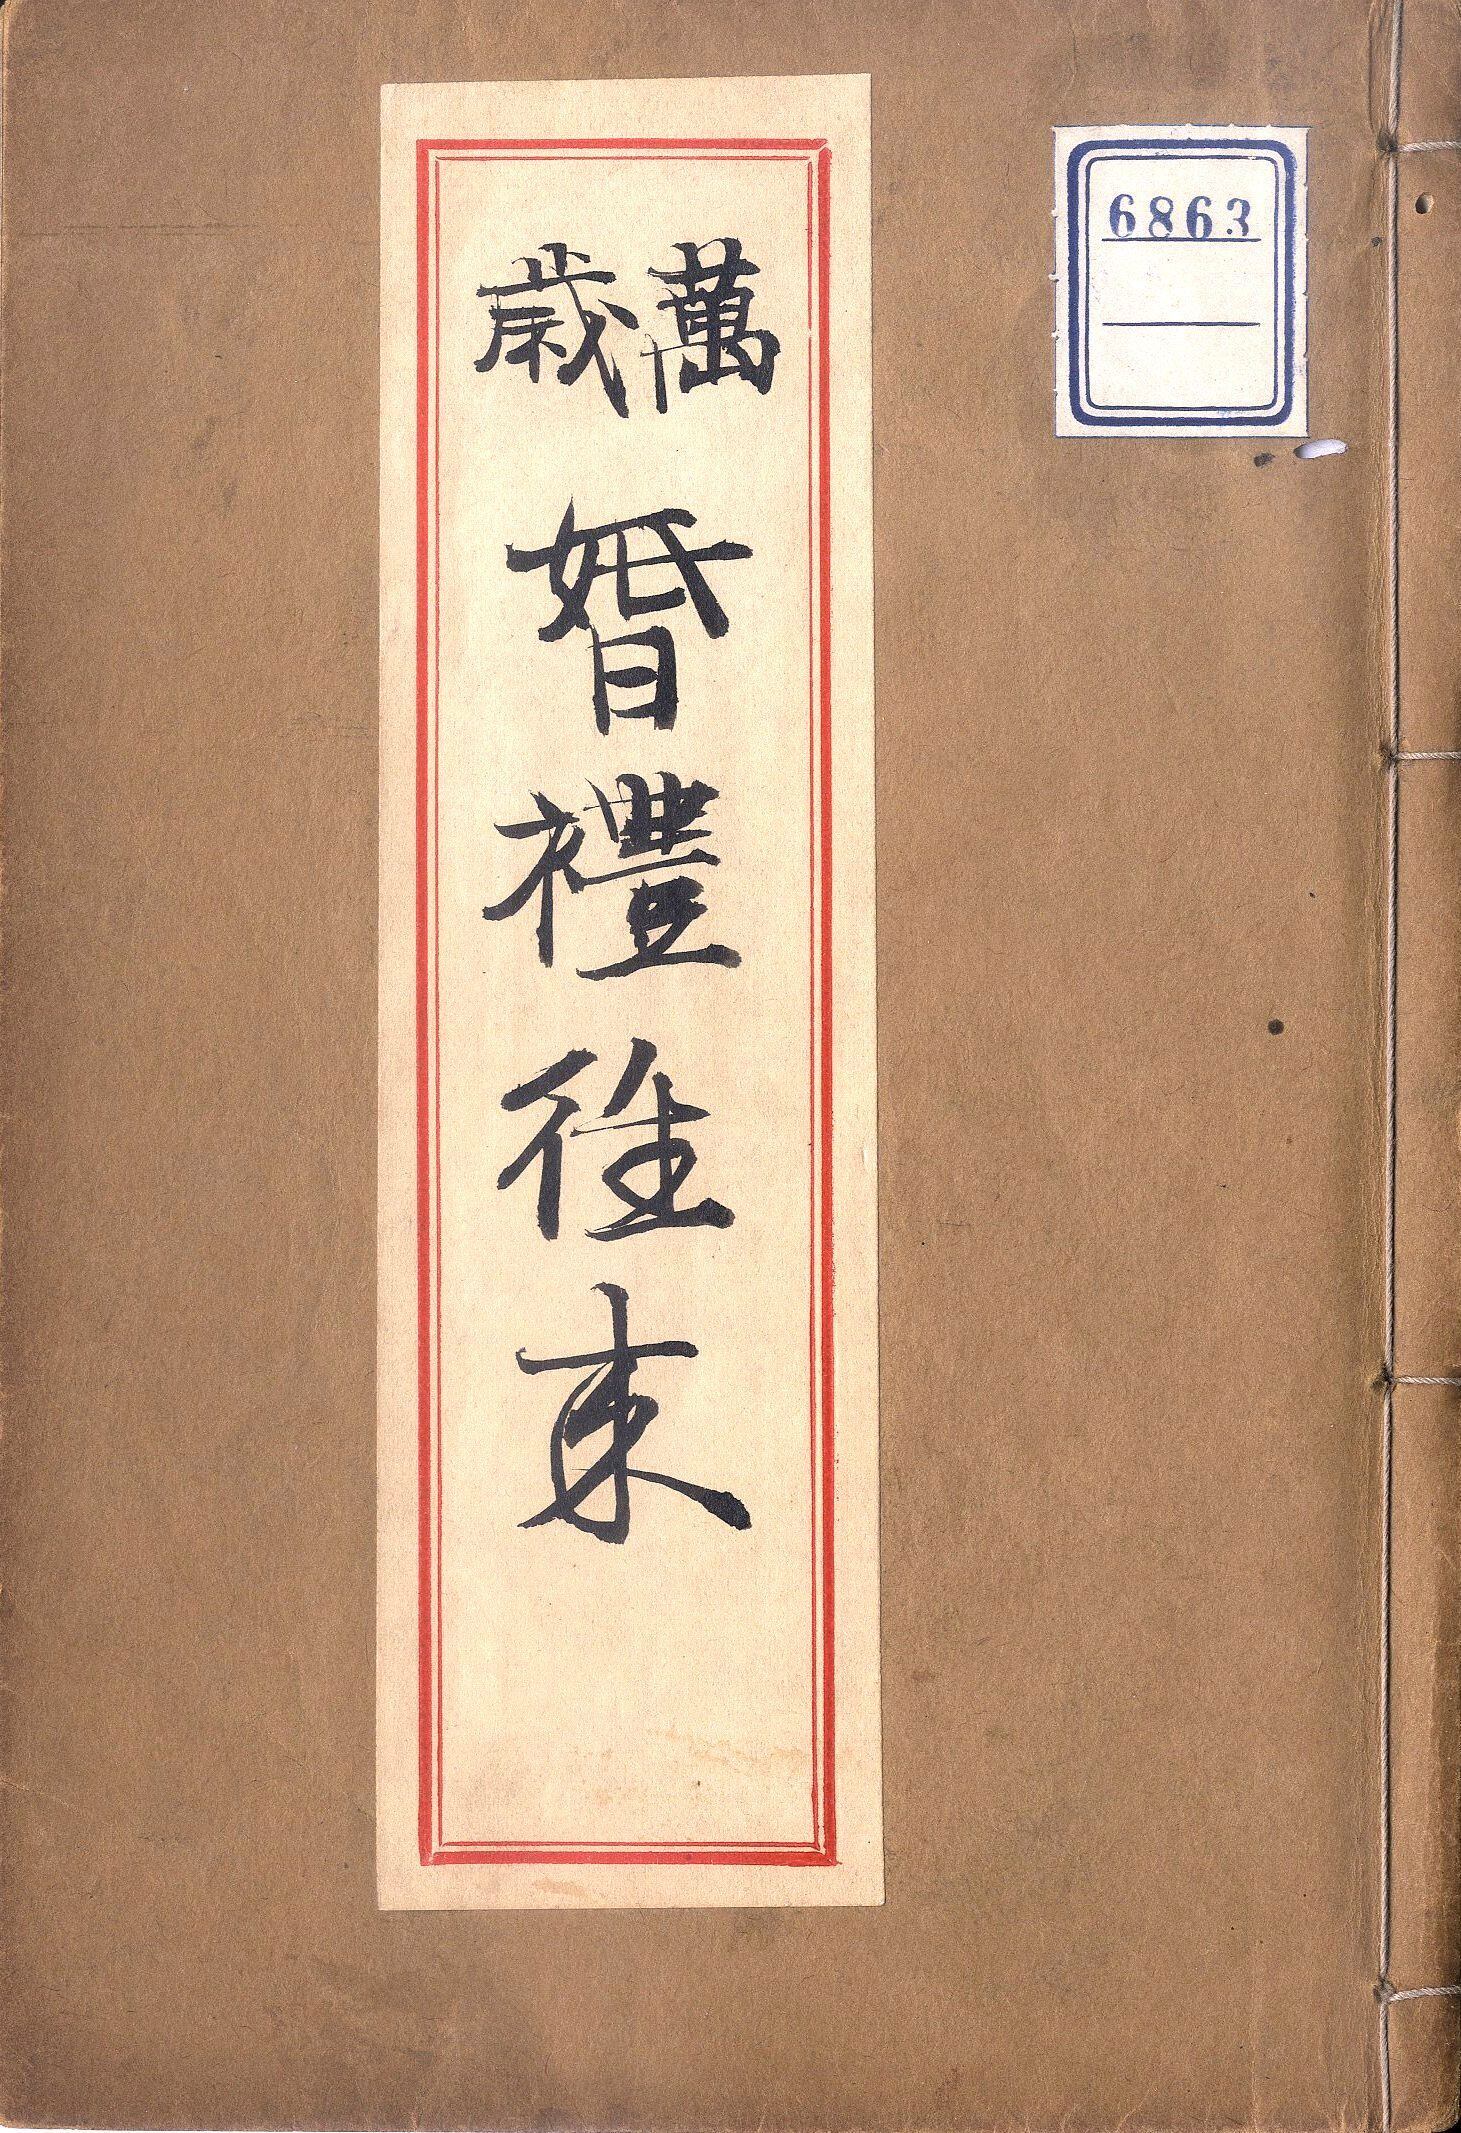 6863
萬歳
婚禮徃来